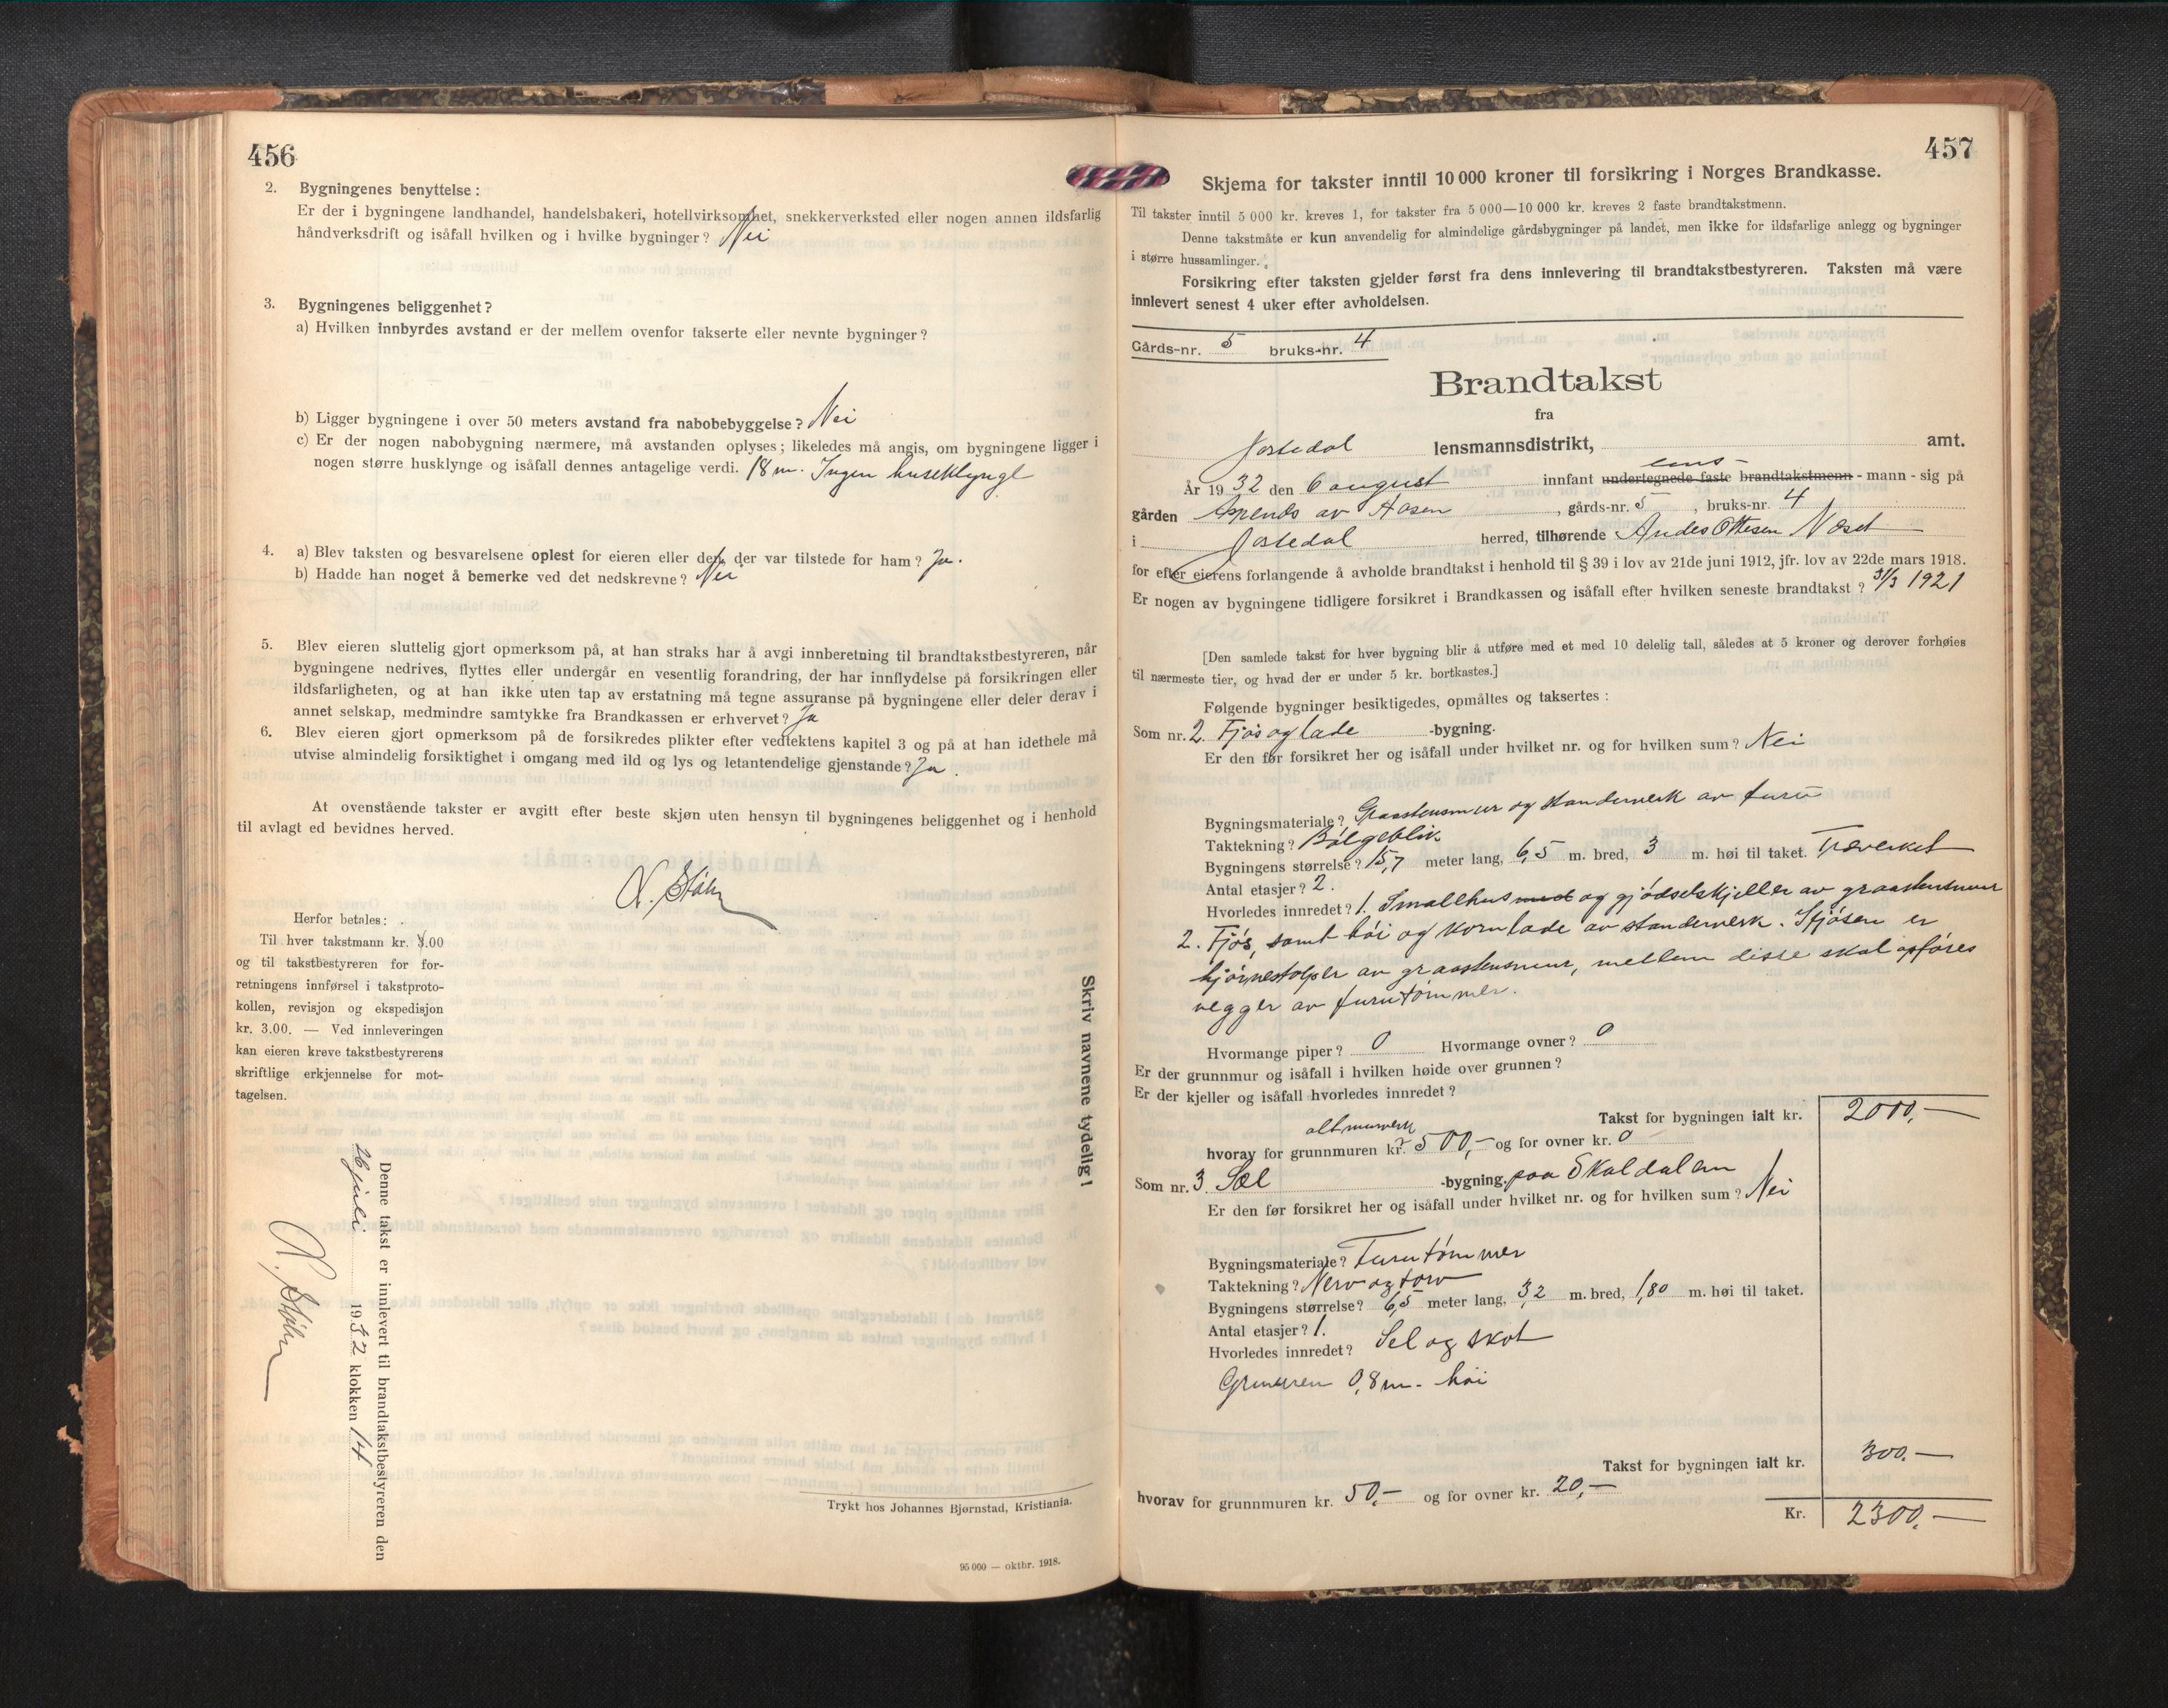 456
2. Bygningenes benyttelse:
Er der i bygningene landhandel, handelsbakeri, hotellvirksomhet, snekkerverksted eller nogen annen ildsfarlig
håndverksdrift og isåfall hvilken og i hvilke bygninger? Nei
3. Bygningenes beliggenhet?
a) Hvilken innbyrdes avstand er der mellem ovenfor takserte eller nevnte bygninger?
b) Ligger bygningene i over 50 meters avstand fra nabobebyggelse? Nei
c) Er der nogen nabobygning nærmere, må avstanden oplyses; likeledes må angis, om bygningene ligger i
nogen større husklynge og isåfall dennes antagelige verdi. 18 m. Ingen huseklynge
4. a) Blev taksten og besvarelsene oplest for eieren eller den, der var tilstede for ham? Ja.
b) Hadde han noget å bemerke ved det nedskrevne? Nei
5. Blev eieren sluttelig gjort opmerksom på, at han straks har å avgi innberetning til brandtakstbestyreren, når
bygningene nedrives, flyttes eller undergår en vesentlig forandring, der har innflydelse på forsikringen eller
ildsfarligheten, og at han ikke uten tap av erstatning må tegne assuranse på bygningene eller deler derav i
annet selskap, medmindre samtykke fra Brandkassen er erhvervet? Ja
6. Blev eieren gjort opmerksom på de forsikredes plikter efter vedtektens kapitel 3 og på at han idethele må
utvise almindelig forsiktighet i omgang med ild og lys og letantendelige gjenstande? Ja.
At ovenstående takster er avgitt efter beste skjøn uten hensyn til bygningenes beliggenhet og i henhold
til avlagt ed bevidnes herved.
Herfor betales:
Til hver takstmann kr. 3.00
og til takstbestyreren for for-
retningens innførsel i takstproto-
kollen, revisjon og ekspedisjon
kr. 3.00. — Ved innleveringen
kan eieren kreve takstbestyrerens
skriftlige erkjennelse for mot-
tagelsen.
Skriv navnene tydelig!
Denne takst er innlevert til brandtakstbestyreren den
26 juli 1932 klokken 14
Trykt hos Johannes Bjørnstad, Kristiania.
95 000 — oktbr. 1918.
457
Skjema for takster inntil 10 000 kroner til forsikring i Norges Brandkasse.
Til takster inntil 5 000 kr. kreves 1, for takster fra 5 000—10 000 kr. kreves 2 faste brandtakstmenn.
Denne takstmåte er kun anvendelig for almindelige gårdsbygninger på landet, men ikke for ildsfarlige anlegg og bygninger
i større hussamlinger.
Forsikring efter taksten gjelder først fra dens innlevering til brandtakstbestyreren. Taksten må være
innlevert senest 4 uker efter avholdelsen.
Gårds-nr. 5 bruks-nr. 4
Brandtakst
fra
Jostedal lensmannsdistrikt, amt.
lens-
År 1932 den 6 august innfant undertegnede faste brandtakstmenn - mann - sig på
gården av Aasen, gårds-nr. 5, bruks-nr. 4
i Jostedal herred, tilhørende Andes Ottesen Næset
for efter eierens forlangende å avholde brandtakst i henhold til § 39 i lov av 21de juni 1912, jfr. lov av 22de mars 1918.
Er nogen av bygningene tidligere forsikret i Brandkassen og isåfall efter hvilken seneste brandtakst? 31/3 1921
[Den samlede takst for hver bygning blir å utføre med et med 10 delelig tall, således at 5 kroner og derover forhøies
til nærmeste tier, og hvad der er under 5 kr. bortkastes.]
Følgende bygninger besiktigedes, opmåltes og taksertes:
Som nr. 2. Fjøs og lade -bygning.
Er den før forsikret her og isåfall under hvilket nr. og for hvilken sum? Nei
Bygningsmateriale? Graastensmur og standerverk av furu
Taktekning? Bølgeblik
Bygningens størrelse? 15,7 meter lang, 6,5 m. bred, 3 m. høi til taket. Træverket
Antal etasjer? 2.
Hvorledes innredet? 1. Smallhus med og gjødselskjeller av graastensmur
2. Fjøs, samt høi og kornlade av standerverk. I fjøsen er
hjørnestolper av graastensmur, mellem disse skal opføres
vegger av furutømmer.
Hvormange piper? 0 Hvormange ovner? 0
Er der grunnmur og isåfall i hvilken høide over grunnen?
Er der kjeller og isåfall hvorledes innredet?
Takst for bygningen ialt kr. 2000,—
alt murverk
hvorav for grunnmuren kr. 500,— og for ovner kr. 0
Som nr. 3. Sæl -bygning, paa Skaldalen
Er den før forsikret her og isåfall under hvilket nr. og for hvilken sum? Nei
Bygningsmateriale? Furutømmer
Taktekning? Nerv og torv
Bygningens størrelse? 6,5 meter lang, 3,2 m. bred, 1,80 m. høi til taket.
Antal etasjer? 1.
Hvorledes innredet? Sel og skot
Grmuren 0,8 m. høi
Takst for bygningen ialt kr. 300.—
hvorav for grunnmuren kr. 50,— og for ovner kr. 20,—
Kr. 2300,—